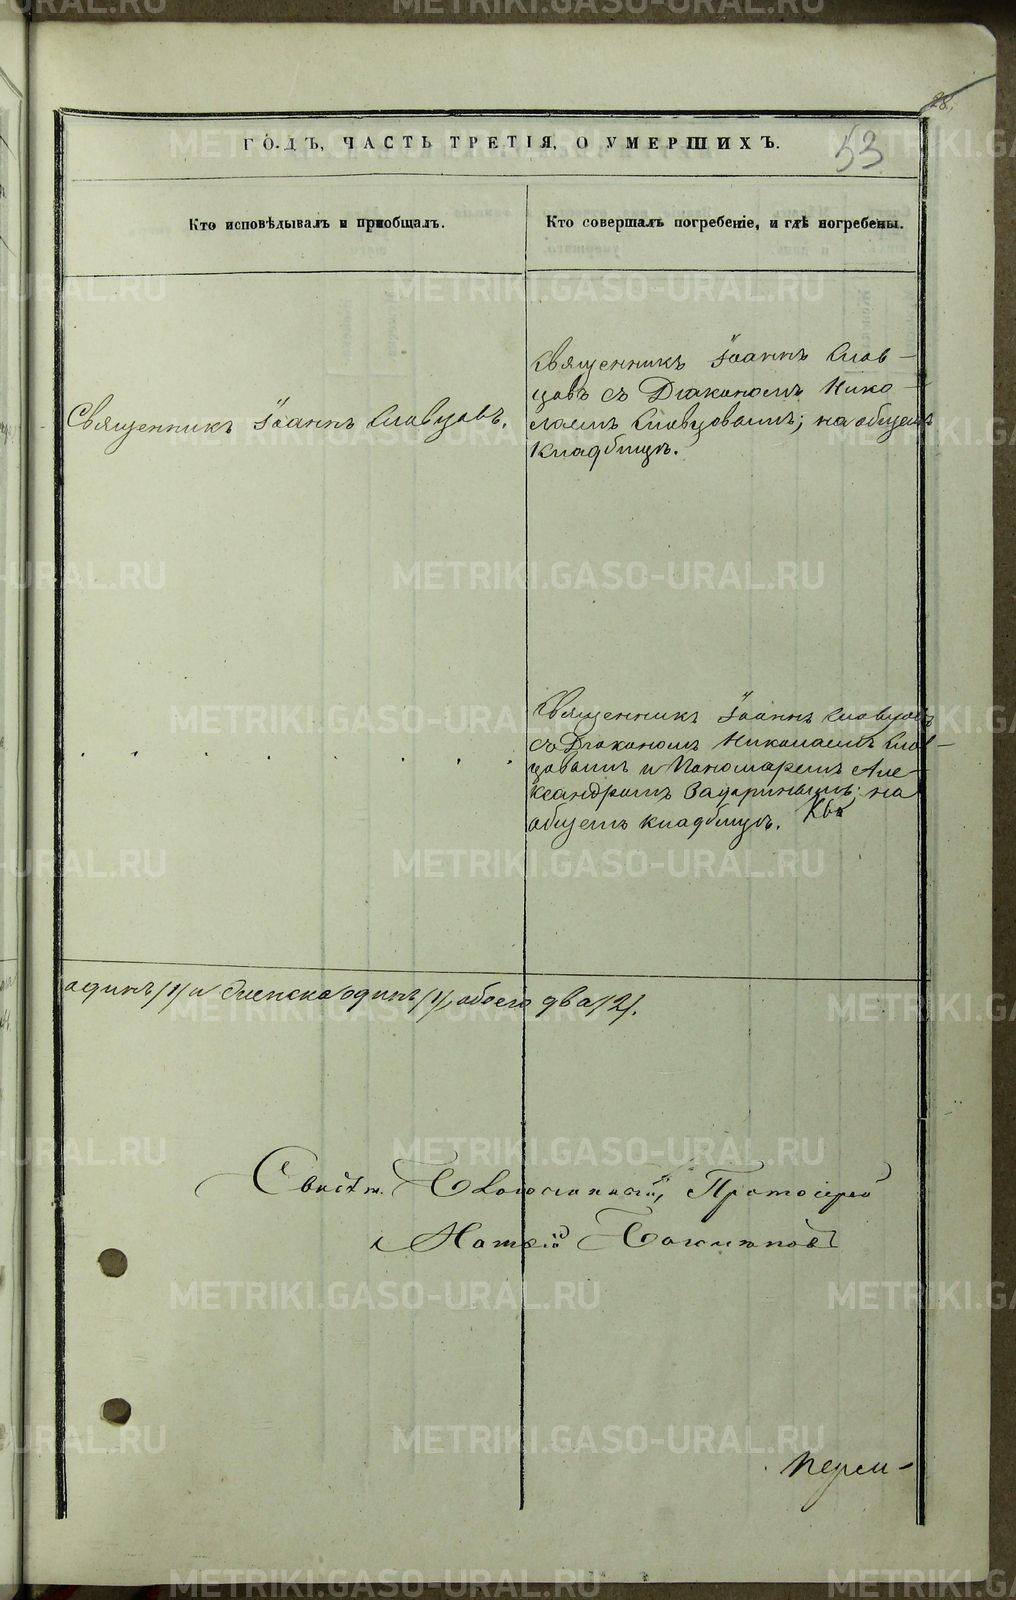 28.
53
ГОДЪ, ЧАСТЬ ТРЕТІЯ, О УМЕРШИХЪ.
Кто исповѣдывалъ и пріобщалъ.
Кто совершалъ погребеніе, и гдѣ погребены.
Священникъ Іоаннъ Словцовъ.
Священникъ Іоаннъ Слов-
цовъ съ Діакономъ Нико-
лаемъ Словцовымъ; на общемъ
кладбищѣ.
Священникъ Іоаннъ Словцовъ
съ Діакономъ Николаемъ Слов-
цовымъ и Пономаремъ Але-
ксандромъ Задоринымъ; на
общемъ кладбищѣ.
одинъ /1/ и женска одинъ /1/, обоего два /2/.
Свидѣт. Благочинный, Протоіерей
Перси-
METRIKI.GASO-URAL.RU